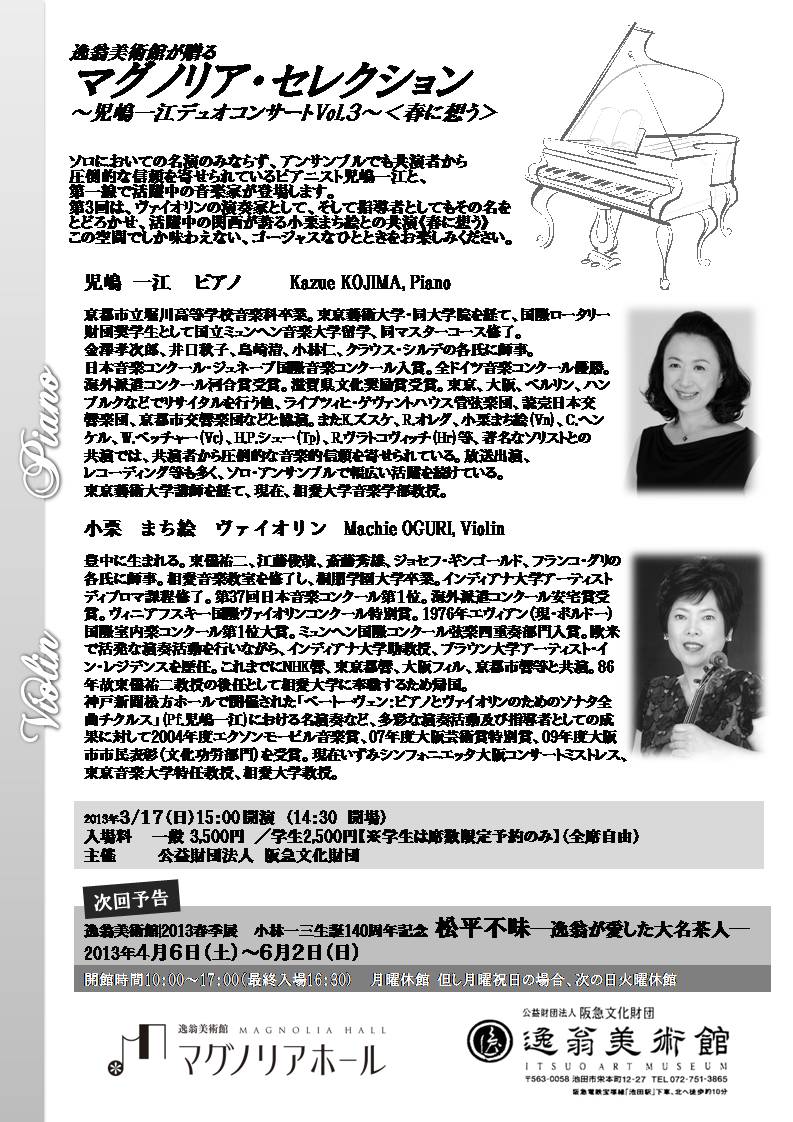 逸翁美術館が贈る
マグノリア・セレクション
～児嶋一江デュオコンサートVol.3～＜春に想う＞
ソロにおいての名演のみならず、アンサンブルでも共演者から
圧倒的な信頼を寄せられているピアニスト児嶋一江と、
第一線で活躍中の音楽家が登場します。
第3回は、ヴァイオリンの演奏家として、そして指導者としてもその名を
とどろかせ、活躍中の関西が誇る小栗まち絵との共演《春に想う》
この空間でしか味わえない、ゴージャスなひとときをお楽しみください。
児嶋 一江 ピアノ Kazue KOJIMA, Piano
京都市立堀川高等学校音楽科卒業。東京藝術大学・同大学院を経て、国際ロータリー
財団奨学生として国立ミュンヘン音楽大学留学、同マスターコース修了。
金澤孝次郎、井口秋子、島崎清、小林仁、クラウス・シルデの各氏に師事。
日本音楽コンクール・ジュネーブ国際音楽コンクール入賞。全ドイツ音楽コンクール優勝。
海外派遣コンクール河合賞受賞。滋賀県文化奨励賞受賞。東京、大阪、ベルリン、ハン
ブルクなどでリサイタルを行う他、ライプツィヒ・ゲヴァントハウス管弦楽団、読売日本交
響楽団、京都市交響楽団などと協演。またK.ズスケ、R.オレグ、小栗まち絵(Vn)、C.ヘン
ケル、W.ベッチャー(Vc)、H.P.シュー(Tp)、R.ヴラトコヴィッチ(Hr)等、著名なソリストとの
共演では、共演者から圧倒的な音楽的信頼を寄せられている。放送出演、
レコーディング等も多く、ソロ・アンサンブルで幅広い活躍を続けている。
東京藝術大学講師を経て、現在、相愛大学音楽学部教授。
Piano
小栗 まち絵 ヴァイオリン Machie OGURI, Violin
豊中に生まれる。東儀祐二、江藤俊哉、斎藤秀雄、ジョセフ・ギンゴールド、フランコ・グリの
各氏に師事。相愛音楽教室を修了し、桐朋学園大学卒業。インディアナ大学アーティスト
ディプロマ課程修了。第37回日本音楽コンクール第1位。海外派遣コンクール安宅賞受
賞。ヴィニアフスキー国際ヴァイオリンコンクール特別賞。1976年エヴィアン(現・ボルドー)
国際室内楽コンクール第1位大賞。ミュンヘン国際コンクール弦楽四重奏部門入賞。欧米
で活発な演奏活動を行いながら、インディアナ大学助教授、ブラウン大学アーティスト・イ
ン・レジデンスを歴任。これまでにNHK響、東京都響、大阪フィル、京都市響等と共演。86
年故東儀祐二教授の後任として相愛大学に奉職するため帰国。
神戸新聞松方ホールで開催された「ベートーヴェン:ピアノとヴァイオリンのためのソナタ全
曲チクルス」(Pf.児嶋一江)における名演奏など、多彩な演奏活動及び指導者としての成
果に対して2004年度エクソンモービル音楽賞、07年度大阪芸術賞特別賞、09年度大阪
市市民表彰(文化功労部門)を受賞。現在いずみシンフォニエッタ大阪コンサートミストレス、
東京音楽大学特任教授、相愛大学教授。
Violin
2013年3/17(日)15:00開演 (14:30 開場)
入場料 一般 3,500円 ／学生2,500円【※学生は席数限定予約のみ】(全席自由)
主催 公益財団法人 阪急文化財団
次回予告
逸翁美術館|2013春季展 小林一三生誕140周年記念 松平不昧―逸翁が愛した大名茶人―
2013年4月6日(土)～6月2日(日)
開館時間10:00～17:00(最終入場16:30) 月曜休館 但し月曜祝日の場合、次の日火曜休館
逸翁美術館 MAGNOLIA HALL
マグノリアホール
公益財団法人 阪急文化財団
逸翁美術館
ITSUO ART MUSEUM
〒563-0058 池田市栄本町12-27 TEL 072-751-3865
阪急電鉄宝塚線「池田駅」下車、北へ徒歩約10分